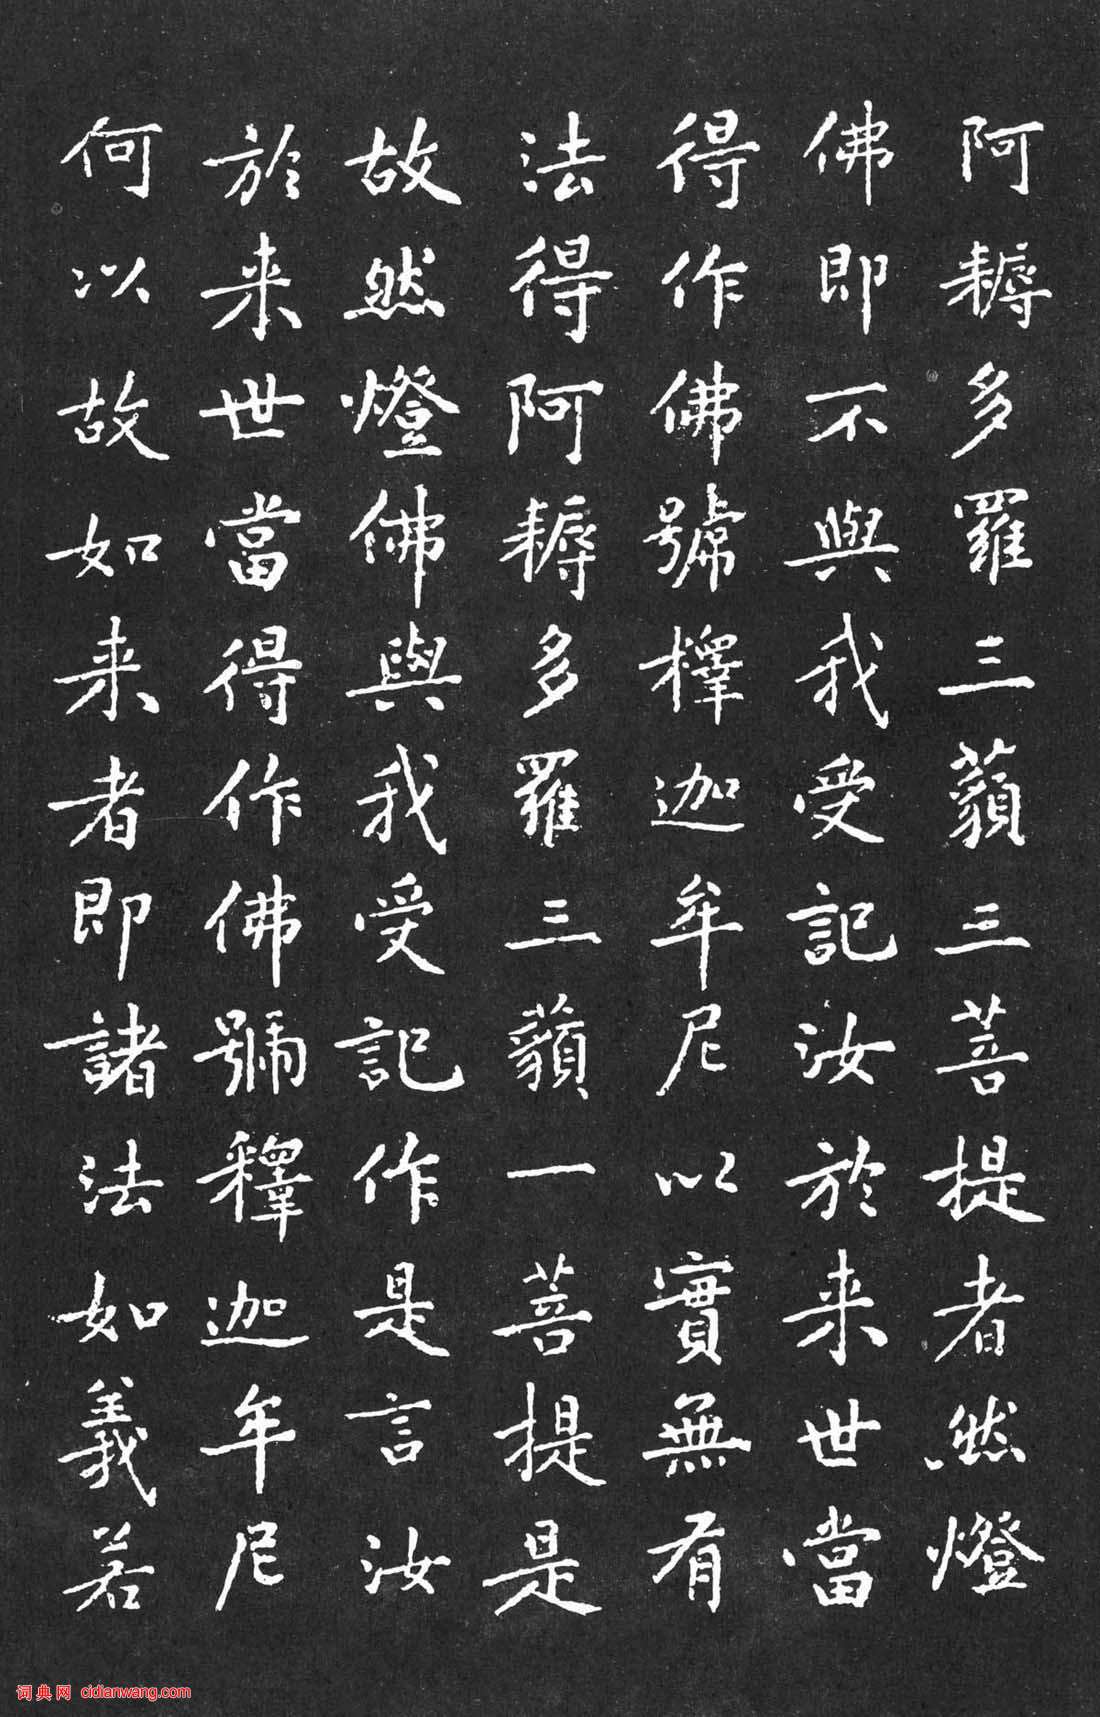 阿耨多羅三藐三菩提者然燈
佛即不與我受記汝於来世當
得作佛號釋迦牟尼以實無有
法得阿耨多羅三藐一菩提是
故然燈佛與我受記作是言汝
於来世當得作佛號釋迦牟尼
何以故如来者即諸法如義若
词典网 cidianwang.com